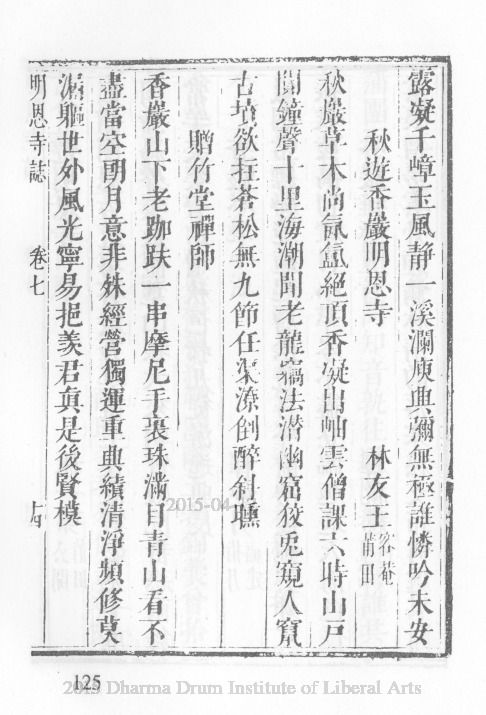 露凝千嶂玉風静一溪瀾庾典彌無極誰憐吟未安
秋遊香嚴明恩寺 林友王 容菴 莆田
秋嚴草木尚氤氳絕頂香凝出岫雲僧課六時山戸
開鐘聲十里海潮聞老龍竊法潜幽窟狡兎窺人竄
古墳欲抂蒼松無九節任渠潦倒醉斜曛
贈竹堂禪師
香嚴山下老跏趺一串摩尼手裏珠滿目青山看不
盡當空明月意非殊經營獨運重典績清淨頻修莫
漏軀世外風光寧易挹羨君真是後賢模
明恩寺誌 卷七 十四
2015-04
125
2015 Dharma Drum Institute of Liberal Arts